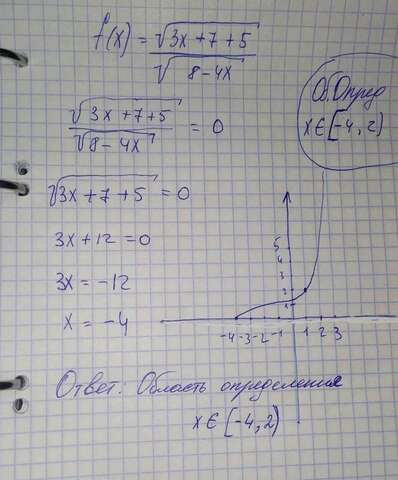 f(x) = √(3x+7+5) / √(8-4x)
√(3x+7+5) / √(8-4x) = 0
√(3x+7+5) = 0
3x+12=0
3x = -12
x = -4
О. Опред
x∈[-4, 2)
5
4
3
2
1
-4 -3 -2 -1 1 2 3
Ответ. Область определения
x∈[-4, 2)